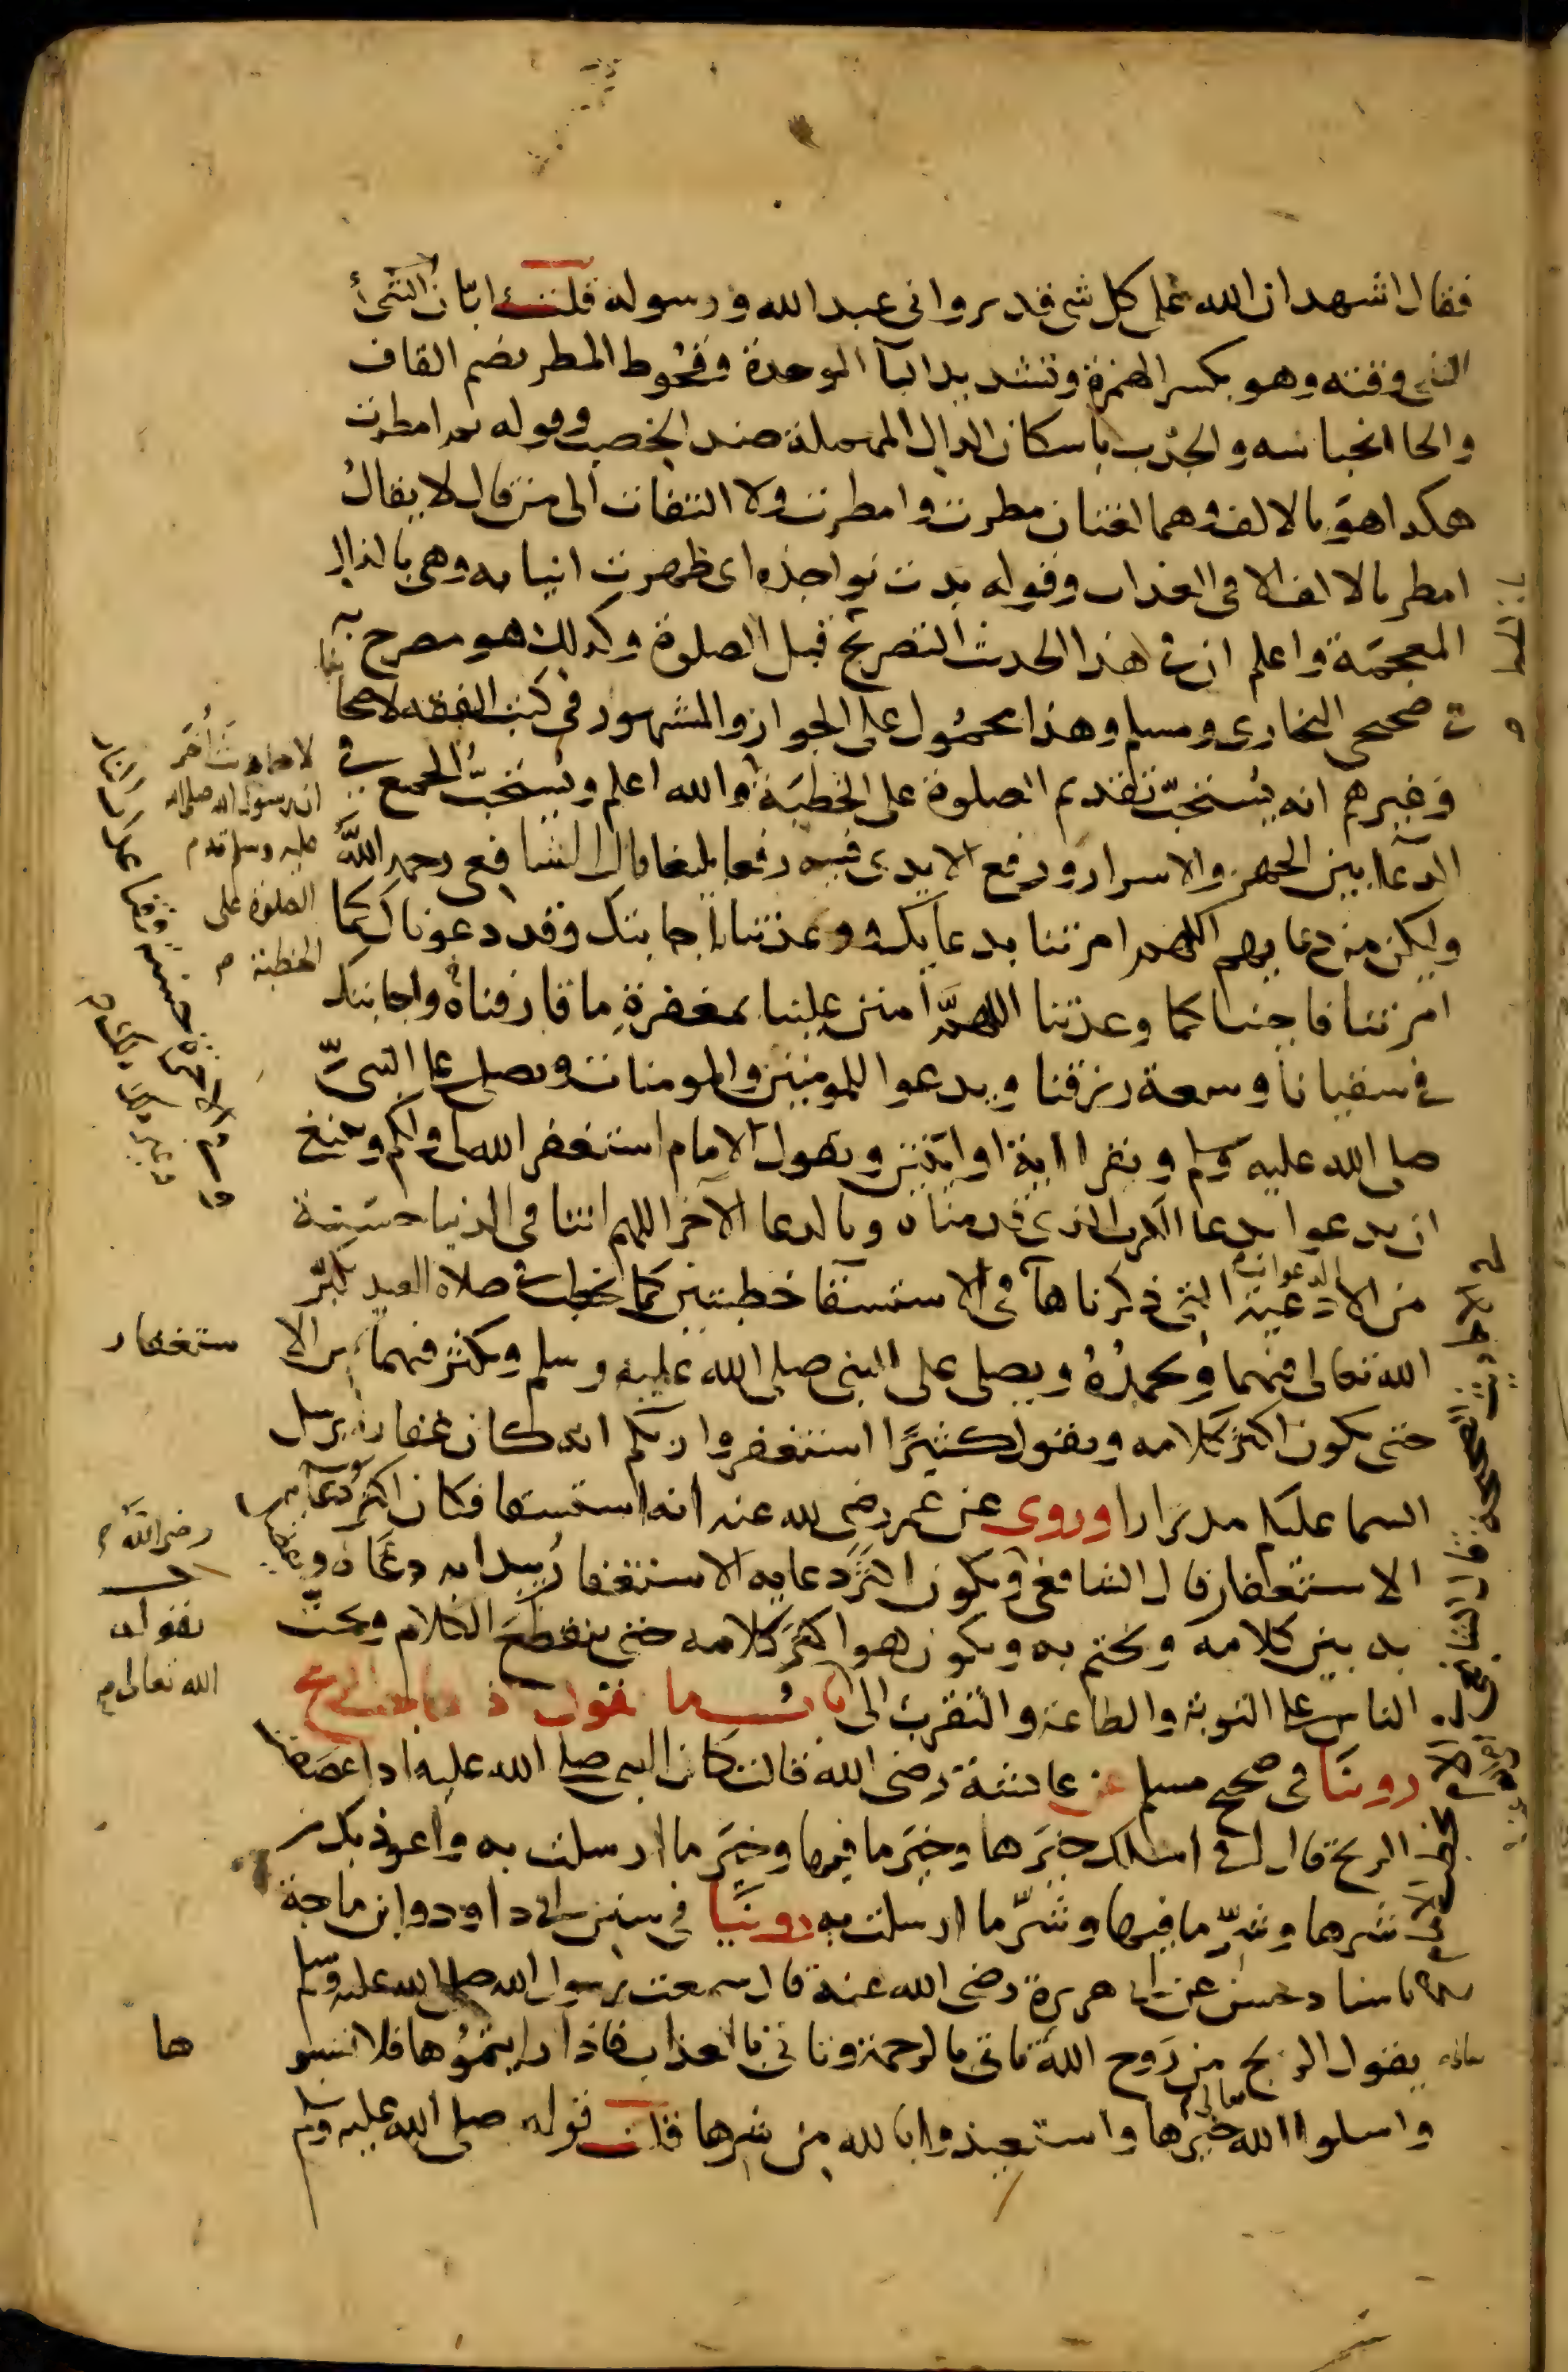 فقال اشهد ان الله على كل شي قدير واني عبد الله ورسوله قلت ابّان الشئ
الشي وقته وهو بكسر الهمزة وتشديد البآ الموحدة وقحُوط المطر بضم القاف
والحا انحباسه والجدْب باسكان الدال المهملة ضد الخصب وقوله ثم امطرت
هكذا هوَ بالالف وهما لغتان مطرت وامطرت ولا التفات الى من قال لا يقالُ
امطر بالالف الا في العذاب وقوله بدت نواجذه اى ظهرت انيابه وهي بالذال
المعجمَة واعلم ان في هذا الحديث التصريح قبل الصلوة وكذلك هو مصرح به
في صحيحي البخاري ومسلم وهذا محمُول على الجواز والمشهور في كتب الفقه لاصحابنا
وغيرهم انه يُستحبّ تقديم الصلوة على الخطبَة والله اعلم ويُستحبّ الجمع في
الدعآ بين الجهر والاسرار ورفع الايدى فيه رفعا بليغا قال الشافعى رحمه اللهُ
وليكن من دعايهم اللهم امرتنا بدعايك ووعدتنا اجابتك وقد دعوناك كما
امرتنا فاجبنا كما وعدتنا اللهمَّ امنن علينا بمغفرةِ ما قارفناهُ واجابتك
في سقيانا وسعة رزقنا ويدعوا للمومنين والمومنات ويصلي على النبيّ
صلى الله عليه وسلم ويقرا اية او ايتين ويقول الامام استغفر الله لي ولكم وينبغي
ان يدعوا بدعا الكرب الذي قدمناه وبالدعا الآخر اللهم اتنا في الدنيا حسَنة
من الادعية التي ذكرناها في الاستسقآ خطبتين كما يخطب في صلاة العيد يكبّر
الله تعالى فيهما ويحمدُهُ ويصلي على النبي صلى الله عليه وسلم ويكثر فيهما من الا
ستغفار
حتى يكون اكثر كلامه ويقول كثيرًا استغفروا ربكم انه كان غفارا يرسل
السما عليكم مدرارا وروى عن عمر رضي لله عنه انه استسقا فكان اكثر دعآيه
الاستغفار قال الشافعى ويكون اكثرَ دعايه الاستغفار يُبدا به دعَاه و
به بين كلامه ويختم به ويكون هو اكثرَ كلامه حتى ينقطعَ الكلام ويحثّ
الناس على التوبة والطاعة والتقرب الى باب ما يقول اذا هاجت الريح
روينَا في صحيح مسلم عن عائشة رضي الله قالت كان النبى صلى الله عليه اذا عصَفت
الريح قال اني اسئلك خيرَها وخيرَ ما فيها وخيرَ ما ارسلت به واعوذ بك من
شرها وشرِّ ما فيها وشرّ ما ارسلت به روينَا في سنن ابي داود وابن ماجة
باسناد حسن عن ابي هريرة رضي الله عنه قال سمعت رسول الله صلى الله عليه وسلم
يقول الريح من رَوح الله تاتي بالرحمة وتاتي بالعذاب فاذا رايتمُوها فلا تسبو
ها
واسلوا الله خيرها واستعيذوا بالله من شرها قلت قوله صلى الله عليه وسلم
لاحاديث أُخَر
ان رسول الله صلى الله
عليه وسلم قدم
الصلوة على
الخطبة
رضي الله
بقوله
الله تعالى